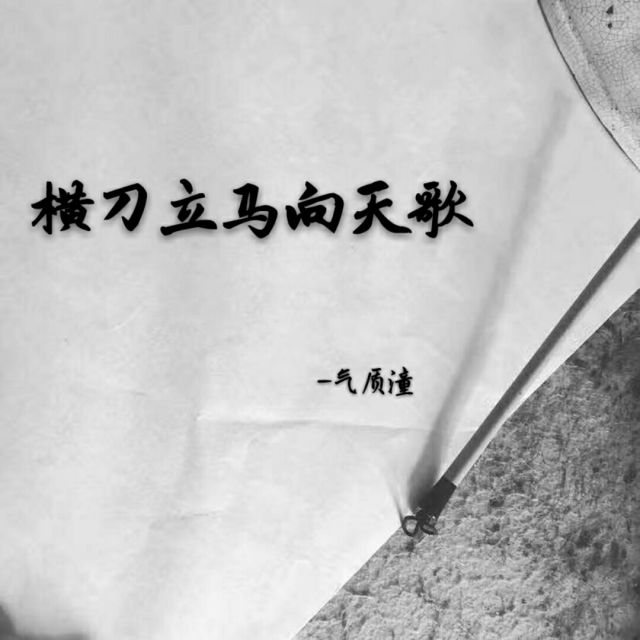 横刀立马向天歌
-气质潼